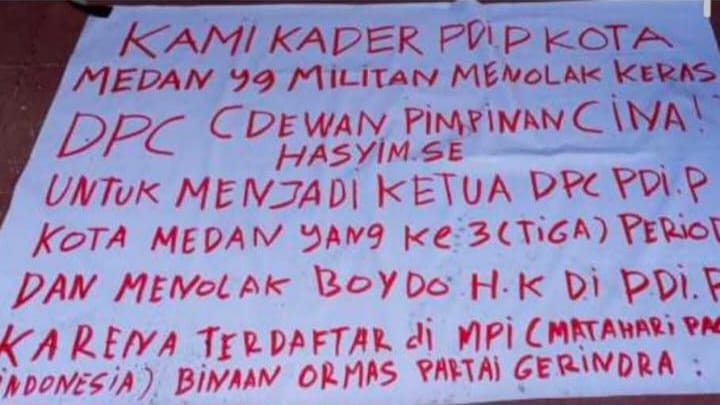 KAMI KADER PDIP KOTA
MEDAN yg MILITAN MENOLAK KERAS
DPC (DEWAN PIMPINAN CINA!
HASYIM.SE
UNTUK MENJADI KETUA DPC PDi.P
KOTA MEDAN YANG KE 3 (TIGA) PERIOD
DAN MENOLAK BOYDO H.K Di PDi.P
KARENA TERDAFTAR di MPI (MATAHARI PAG
INDONESIA) BINAAN ORMAS PARTAI GERINDRA :